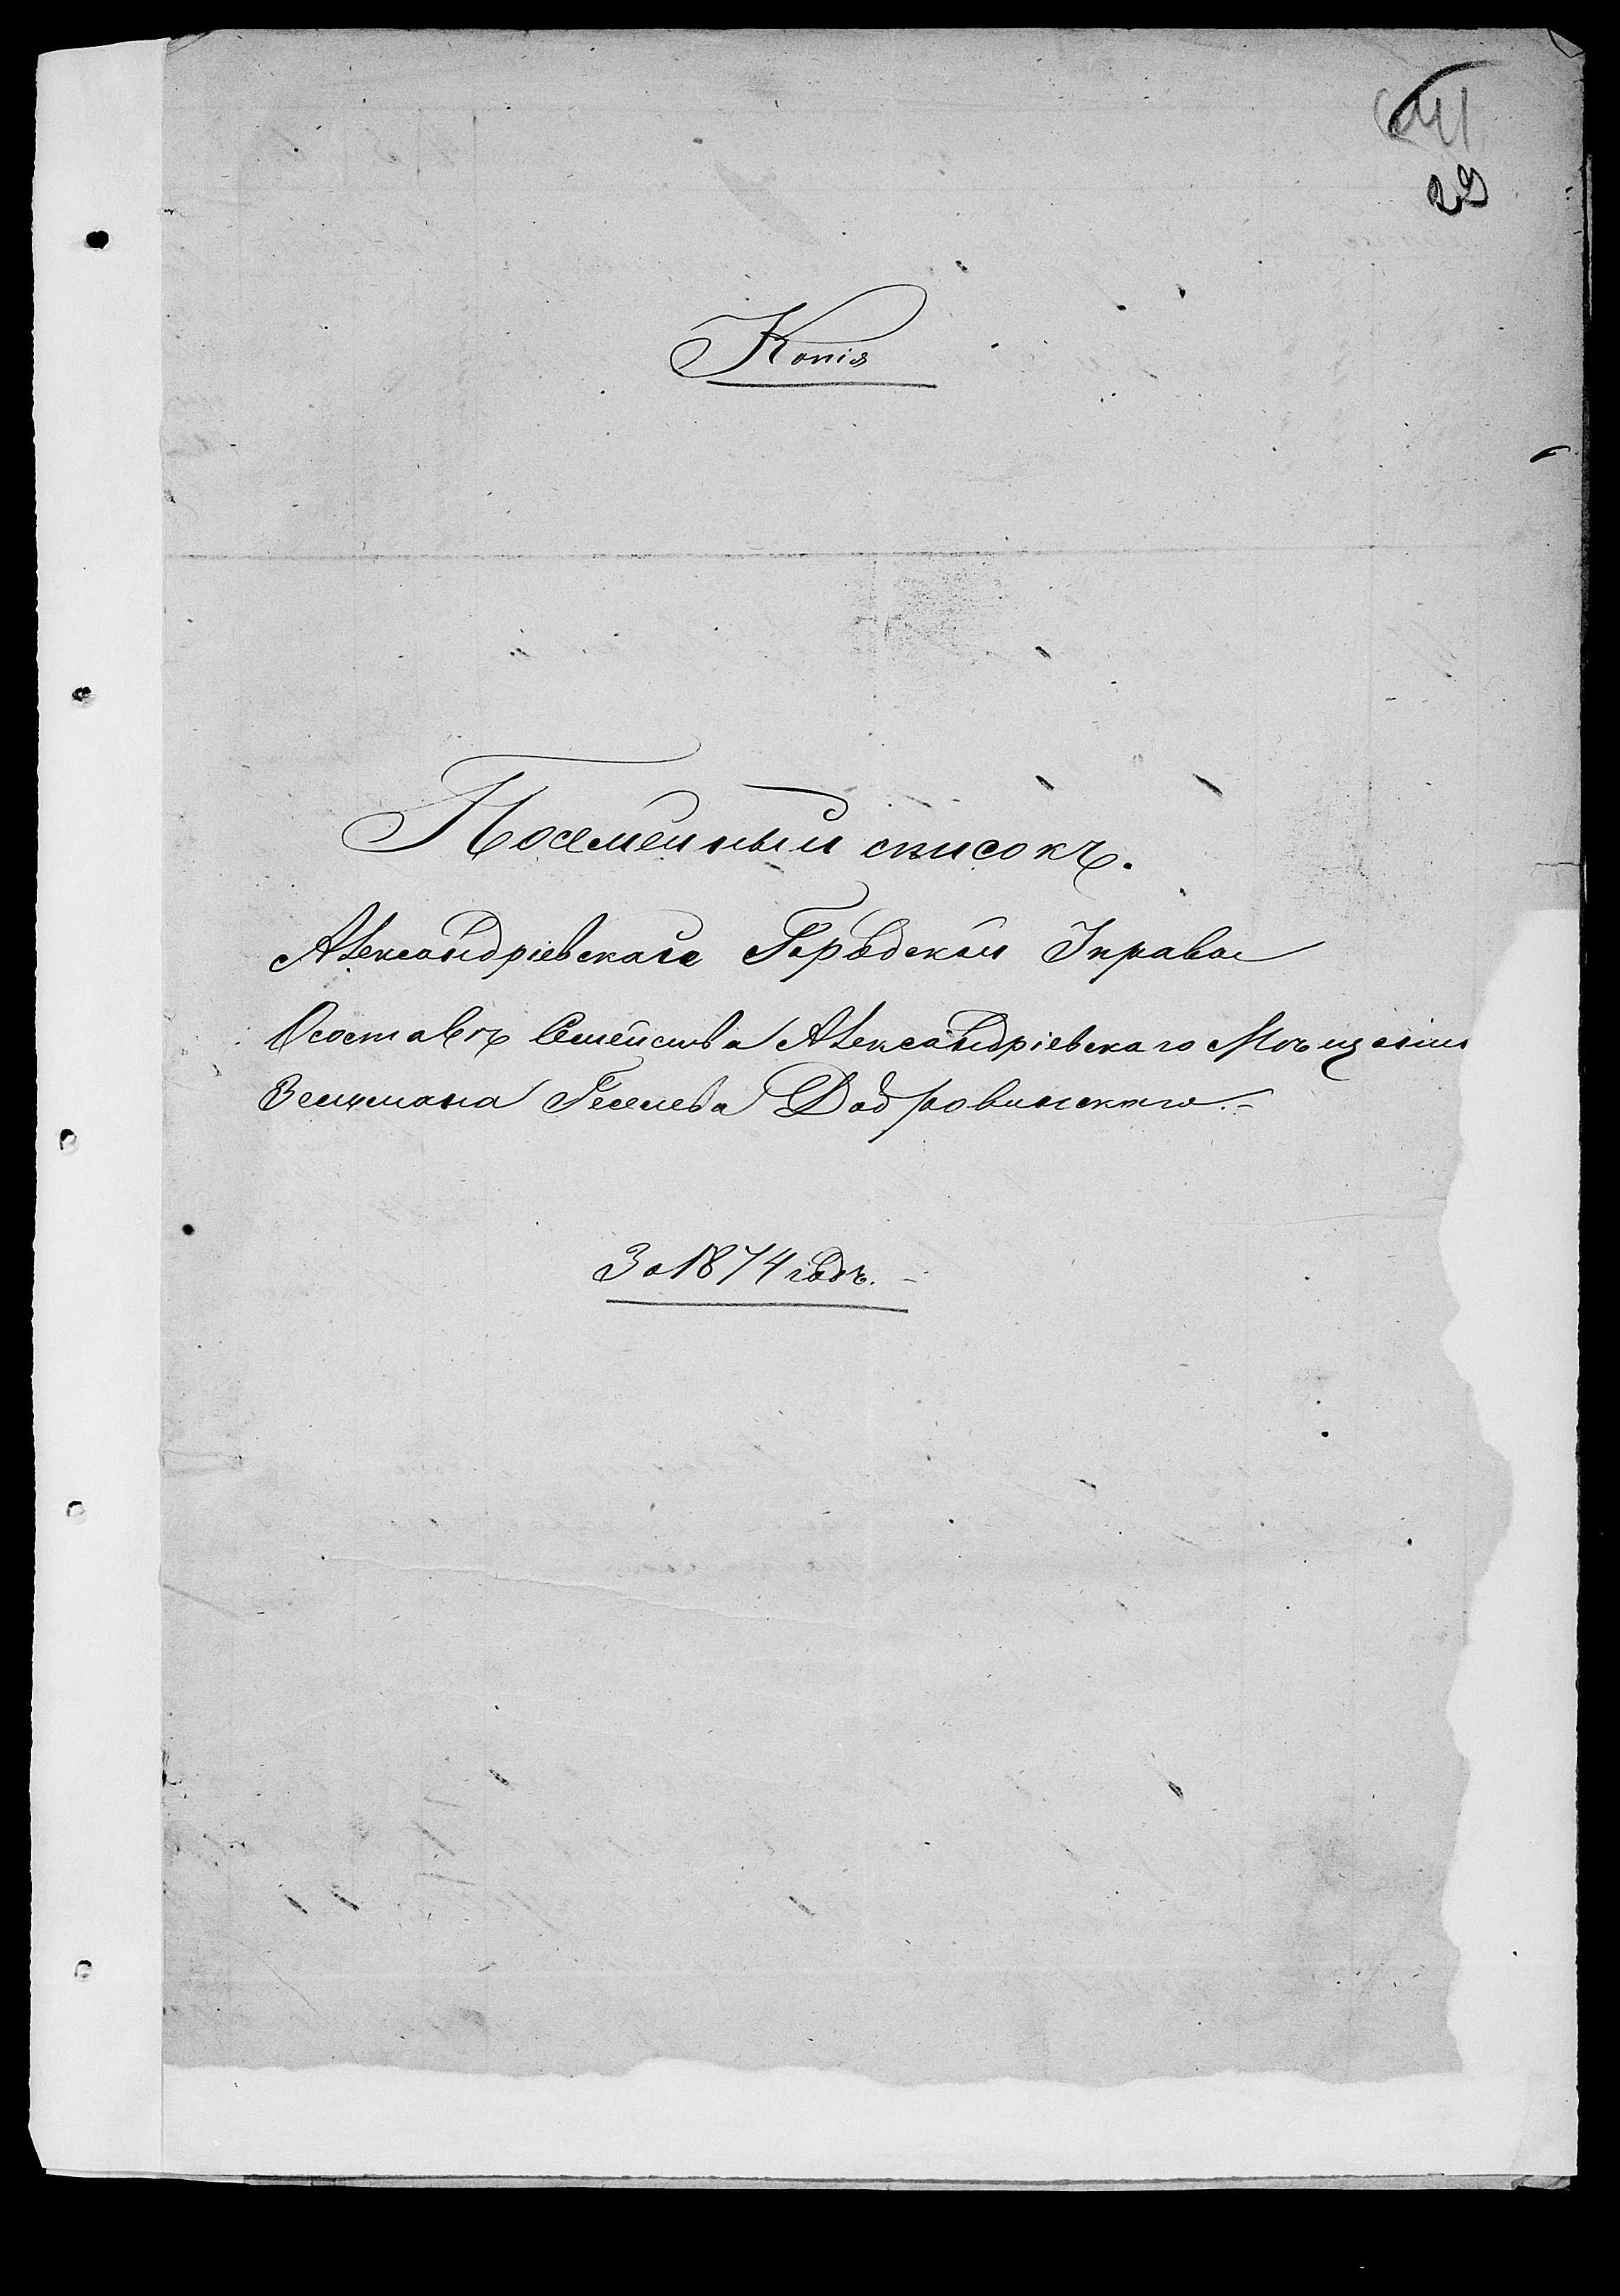 29
Копія
Посемейный списокъ.
Александріевскаго Городской Управа
О составѣ Семейства Александріевскаго Мѣщанин
Зельмана Геселева Добровинскаго.
За 1874 годъ.